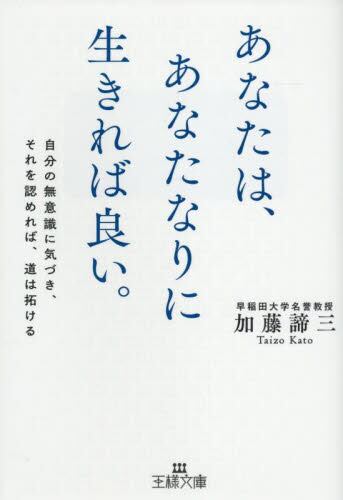 あなたは、
あなたなりに
生きれば良い。
自分の無意識に気づき、
それを認めれば、道は拓ける
早稲田大学名誉教授
加藤諦三
Taizo Kato
王様文庫